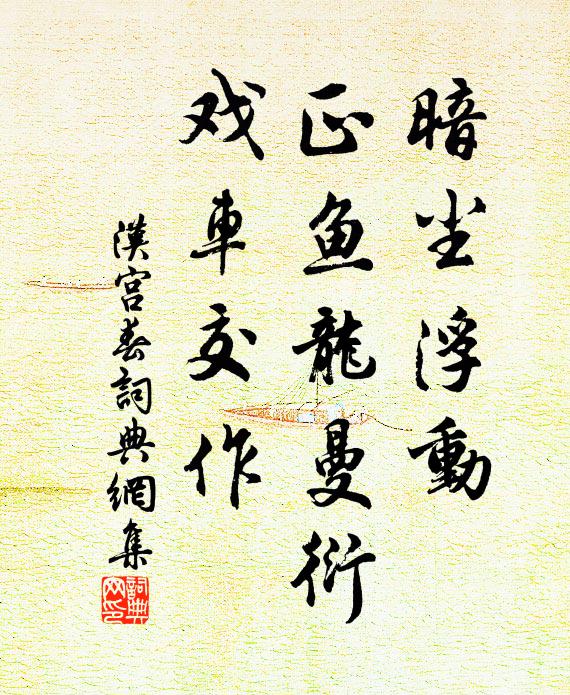 暗尘浮動
正鱼龍曼衍
戏車交作
漢宫春詞典網集
詞典
网印